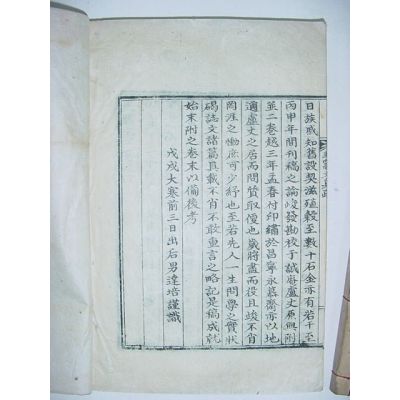 日族戚知舊設契滋殖穀至數十石金亦有若干至
丙甲年間刊稿之論峻發勘校于誠齋盧丈原與附
並二卷越三年孟春付印繡於昌寧永慕齋亦以地
適盧丈之居而問質取優也歲將盡而役且竣不肖
罔涯之慟庶可少紓也至若先人一生問學之實狀
碣誌文諸篇具載不肖不敢重言之略記是稿成就
始末附之卷末以備後考
戊戌大寒前三日出后男達培謹識